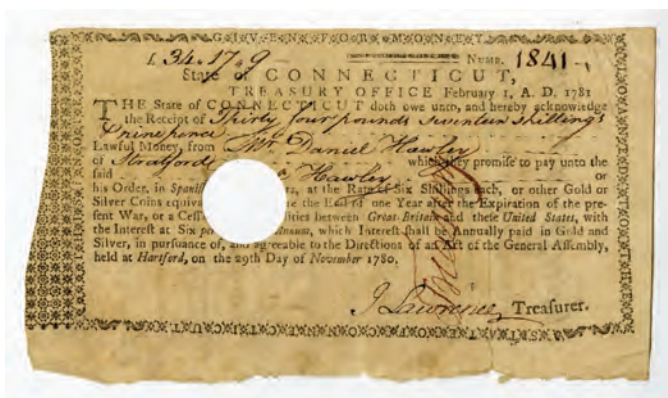 GIVEN FOR MONEY
£ 34..17..9 NUMB. 1841
State of CONNECTICUT,
TREASURY OFFICE February 1, A. D. 1781
THE State of CONNECTICUT doth owe unto, and hereby acknowledge
the Receipt of Thirty four pounds Seventeen Shillings
& nine pence
Lawful Money, from Mr. Daniel Hawley
of Stratford which they promise to pay unto the
said Hawley or
his Order, in Spani at the Rate of Six Shillings each, or other Gold or
Silver Coins equiva the End of one Year after the Expiration of the pre-
sent War, or a Cess lities between Great-Britain and these United States, with
the Interest at Six per Annum, which Interest shall be Annually paid in Gold and
Silver, in pursuance of, and agreeable to the Directions of an Act of the General Assembly,
held at Hartford, on the 29th Day of November 1780.
J Lawrence, Treasurer.
LOANED TO THE
STATE OF CONNECTICUT